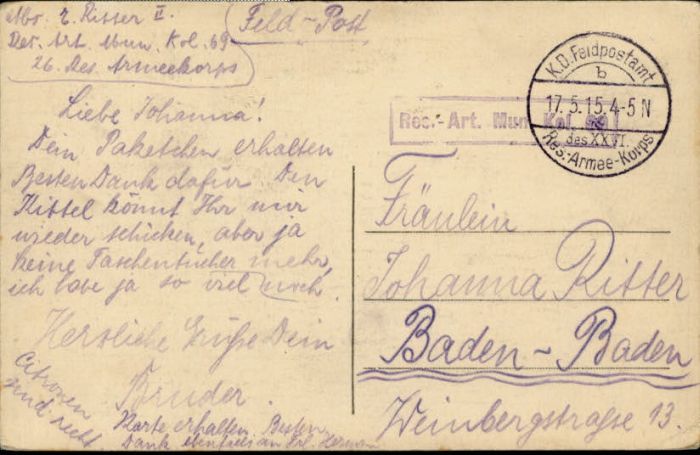 Abs. E. Ritter II.
Res. Art. Mun. Kol. 69
26. Res. Armeekorps
Feld-Post
K.D. Feldpostamt
b
17.5.15.4-5 N
des XXVI.
Res.-Armee-Korps
Res.-Art. Mun. Kol. 69
Liebe Johanna!
Dein Paketchen erhalten
Besten Dank dafür Den
Kittel könnt Ihr mir
wieder schicken, aber ja
keine Taschentücher mehr,
ich habe ja so viel noch.
Herzliche Grüße Dein
Bruder.
Citronen
sind recht
Karte erhalten, Besten
Dank ebenfalls an Frl.
Fräulein
Johanna Ritter
Baden-Baden
Weinbergstraße 13.